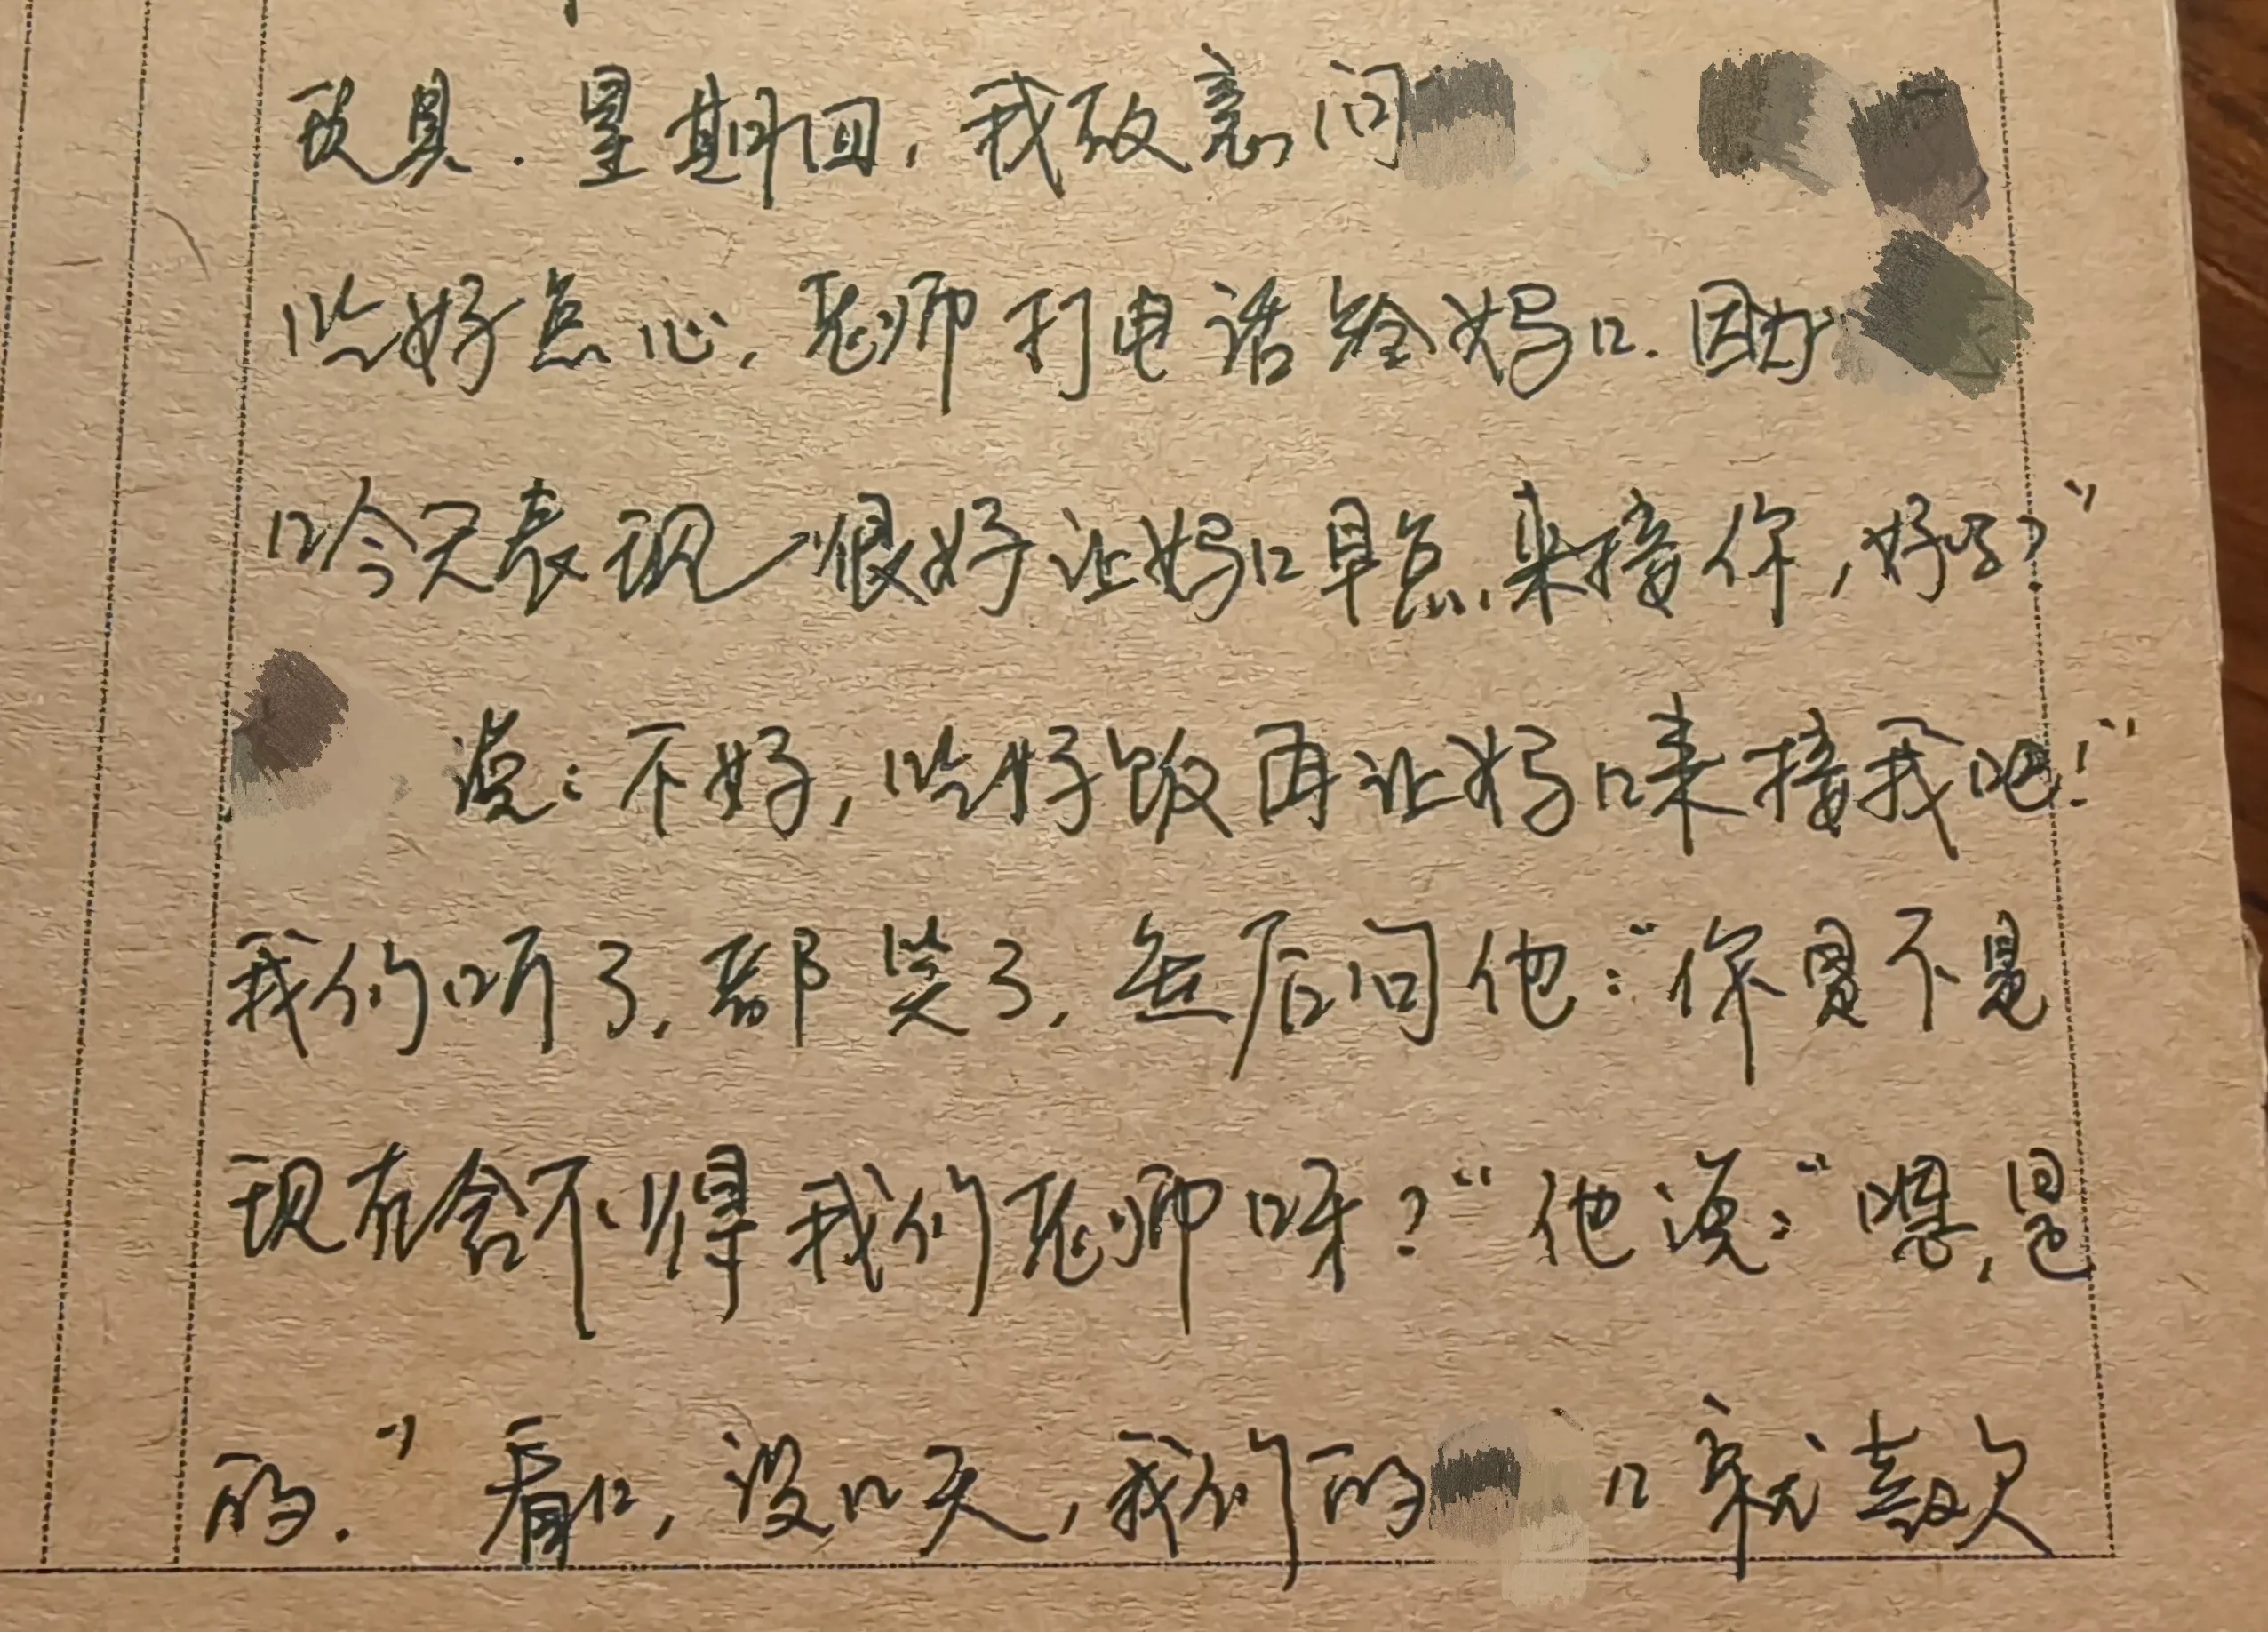 玩具.星期四,我故意问
吃好点心,老师打电话给妈口.因为
口今天表现很好让妈口早点来接你,好吗?"
说:不好,吃好饭再让妈口来接我吧!"
我们听了,都笑了,然后问他:"你是不是
现在舍不得我们老师呀?"他说:"嗯,是
的."看口,没口天,我们的 口就喜欢